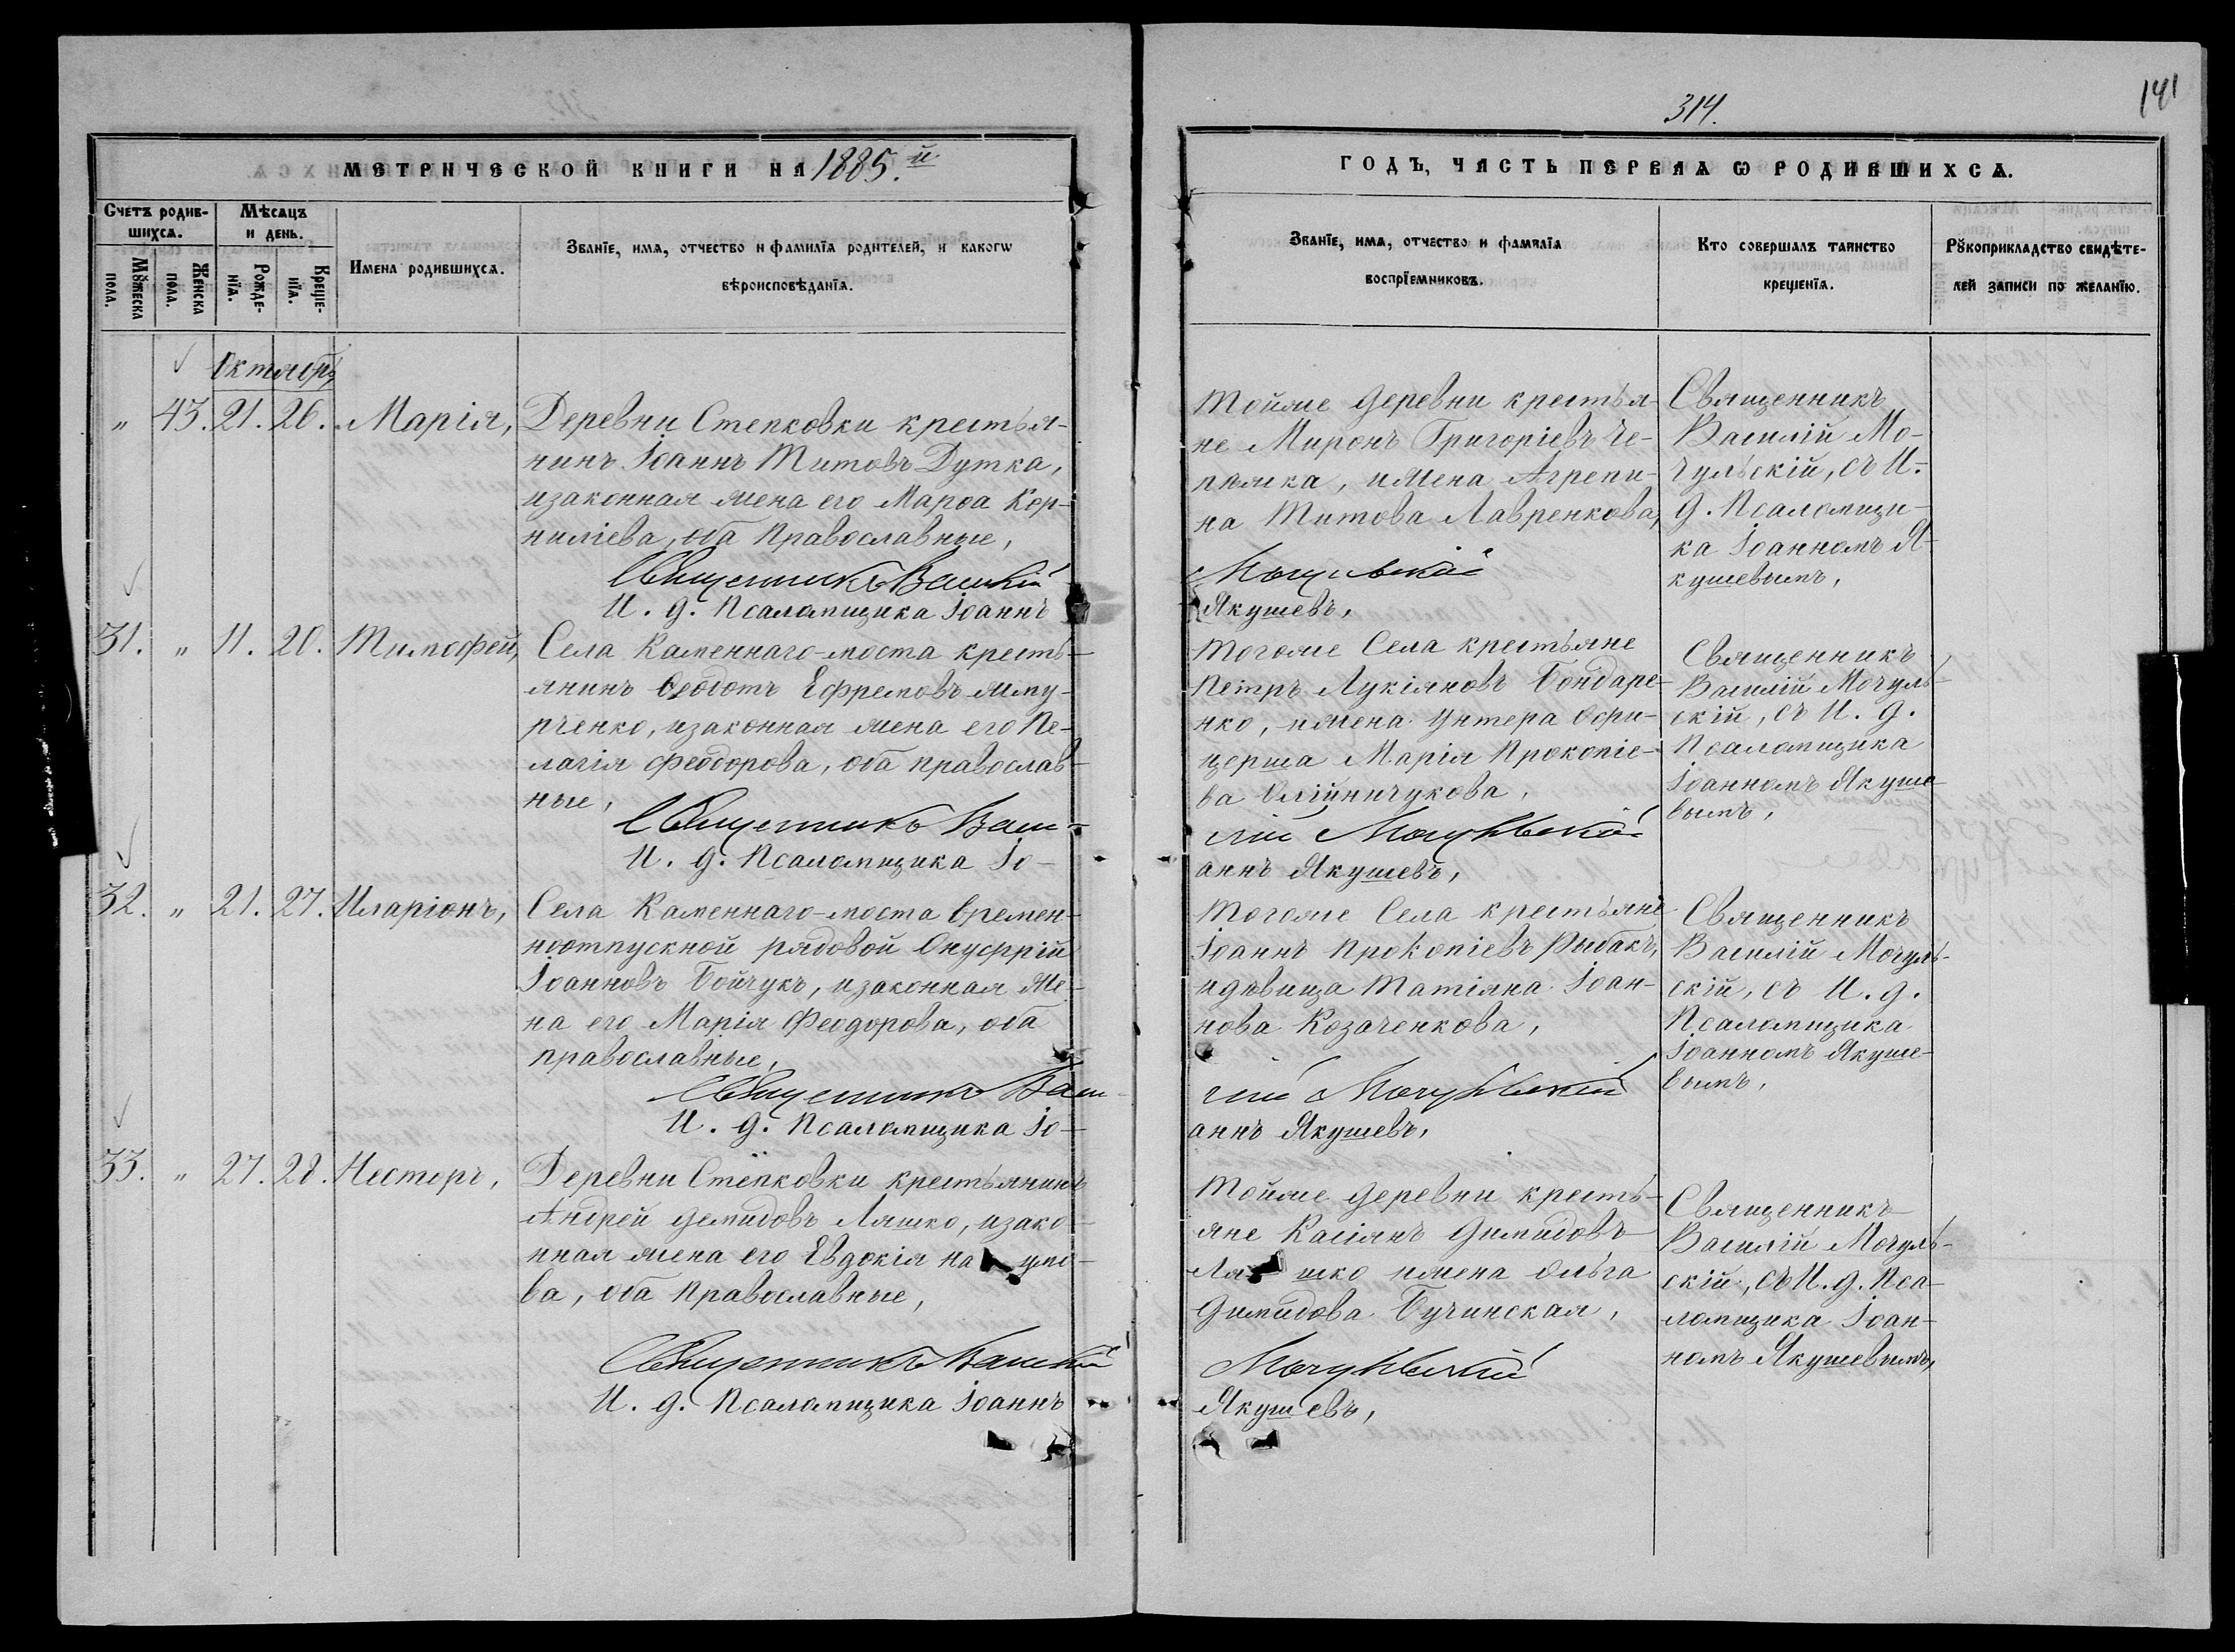 314.
141
МЕТРИЧЕСКОЙ КНИГИ НА 1885.й
ГОДЪ, ЧАСТЬ ПЕРВАЯ Ѡ РОДИВШИХСЯ.
Счетъ родив-
шихся.
Мѣсяцъ
и день.
Мꙋжеска
пола.
Женска
пола.
Рожде-
нїя.
Креще-
нїя.
Имена родившихся.
Званїе, имя, отчество и фамилїя родителей, и какогѡ
вѣроисповѣданїя.
Званїе, имя, отчество и фамилїя
воспрїемниковъ.
Кто совершалъ таинство
крещенїя.
Рꙋкоприкладство свидѣте-
лей записи по желанїю.
Октябрь
" 43. 21. 26. Марія,
Деревни Степковки крестья-
нинъ Іоаннъ Титовъ Дутка,
изаконная жена его Марѳа Кор-
ниліева, оба Православные,
Священникъ Василій
И. д. Псаломщика Іоаннъ
Тойже деревни крестья-
не Миронъ Григоріевъ Че-
пѣлка, ижена Агрепи-
на Титова Лавренкова,
Мочульскій
Якушевъ,
Священникъ
Василій Мо-
чульскій, съ И.
д. Псаломщи-
ка Іоанномъ Я-
кушевымъ,
31. " 11. 20. Тимофей,
Села Каменнаго-моста кресть-
янинъ Ѳеодотъ Ефремовъ
рченко, изаконная жена его Пе-
лагія Феодорова, оба православ-
ные,
Священникъ Васи-
И. д. Псаломщика Іо-
Тогоже Села крестьяне
Петръ Лукіяновъ Бондаре-
нко, ижена Унтера Офи-
церша Марія Прокопіе-
ва Олійничукова,
лій Мочульскій
аннъ Якушевъ,
Священникъ
Василій Мочуль-
скій, съ И. д.
Псаломщика
Іоанномъ Якуше
вымъ,
32. " 21. 27. Иларіонъ,
Села Каменнаго-моста времен-
ноотпускной рядовой Онуфрій
Іоанновъ Бойчукъ, изаконная же-
на его Марія Феодорова, оба
православные,
Священникъ Васи-
И. д. Псаломщика Іо-
Тогоже Села крестьяне
Іоаннъ Прокопіевъ Рыбакъ,
идѣвица Татіяна Іоан-
нова Козаченкова,
лій Мочульскій
аннъ Якушевъ,
Священникъ
Василій Мочуль-
скій, съ И. д.
Псаломщика
Іоанномъ Якуше-
вымъ,
33. " 27. 28. Несторъ,
Деревни Степковки крестьянинъ
Андрей Демидовъ Ляшко, изако-
нная жена его Евдокія
ва, оба Православные,
Священникъ Василій
И. д. Псаломщика Іоаннъ
Тойже деревни кресть-
яне Касіянъ Димидовъ
Ляшко ижена Ольга
Димидова Бучинская,
Мочульскій
Якушевъ,
Священникъ
Василій Мочуль-
скій, съ И. д. Пса-
ломщика Іоан-
номъ Якушевымъ,